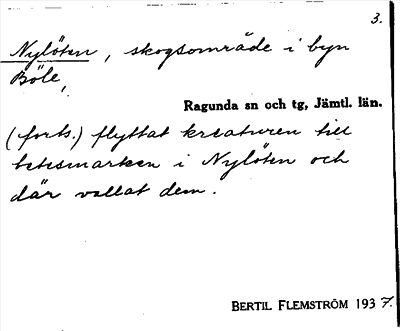 3.
Nylöten, skogsområde i byn
Böle,
Ragunda sn och tg, Jämtl. län.
(forts.) flyttat kreaturen till
betesmarken i Nylöten och
där vallat dem.
BERTIL FLEMSTRÖM 1937.